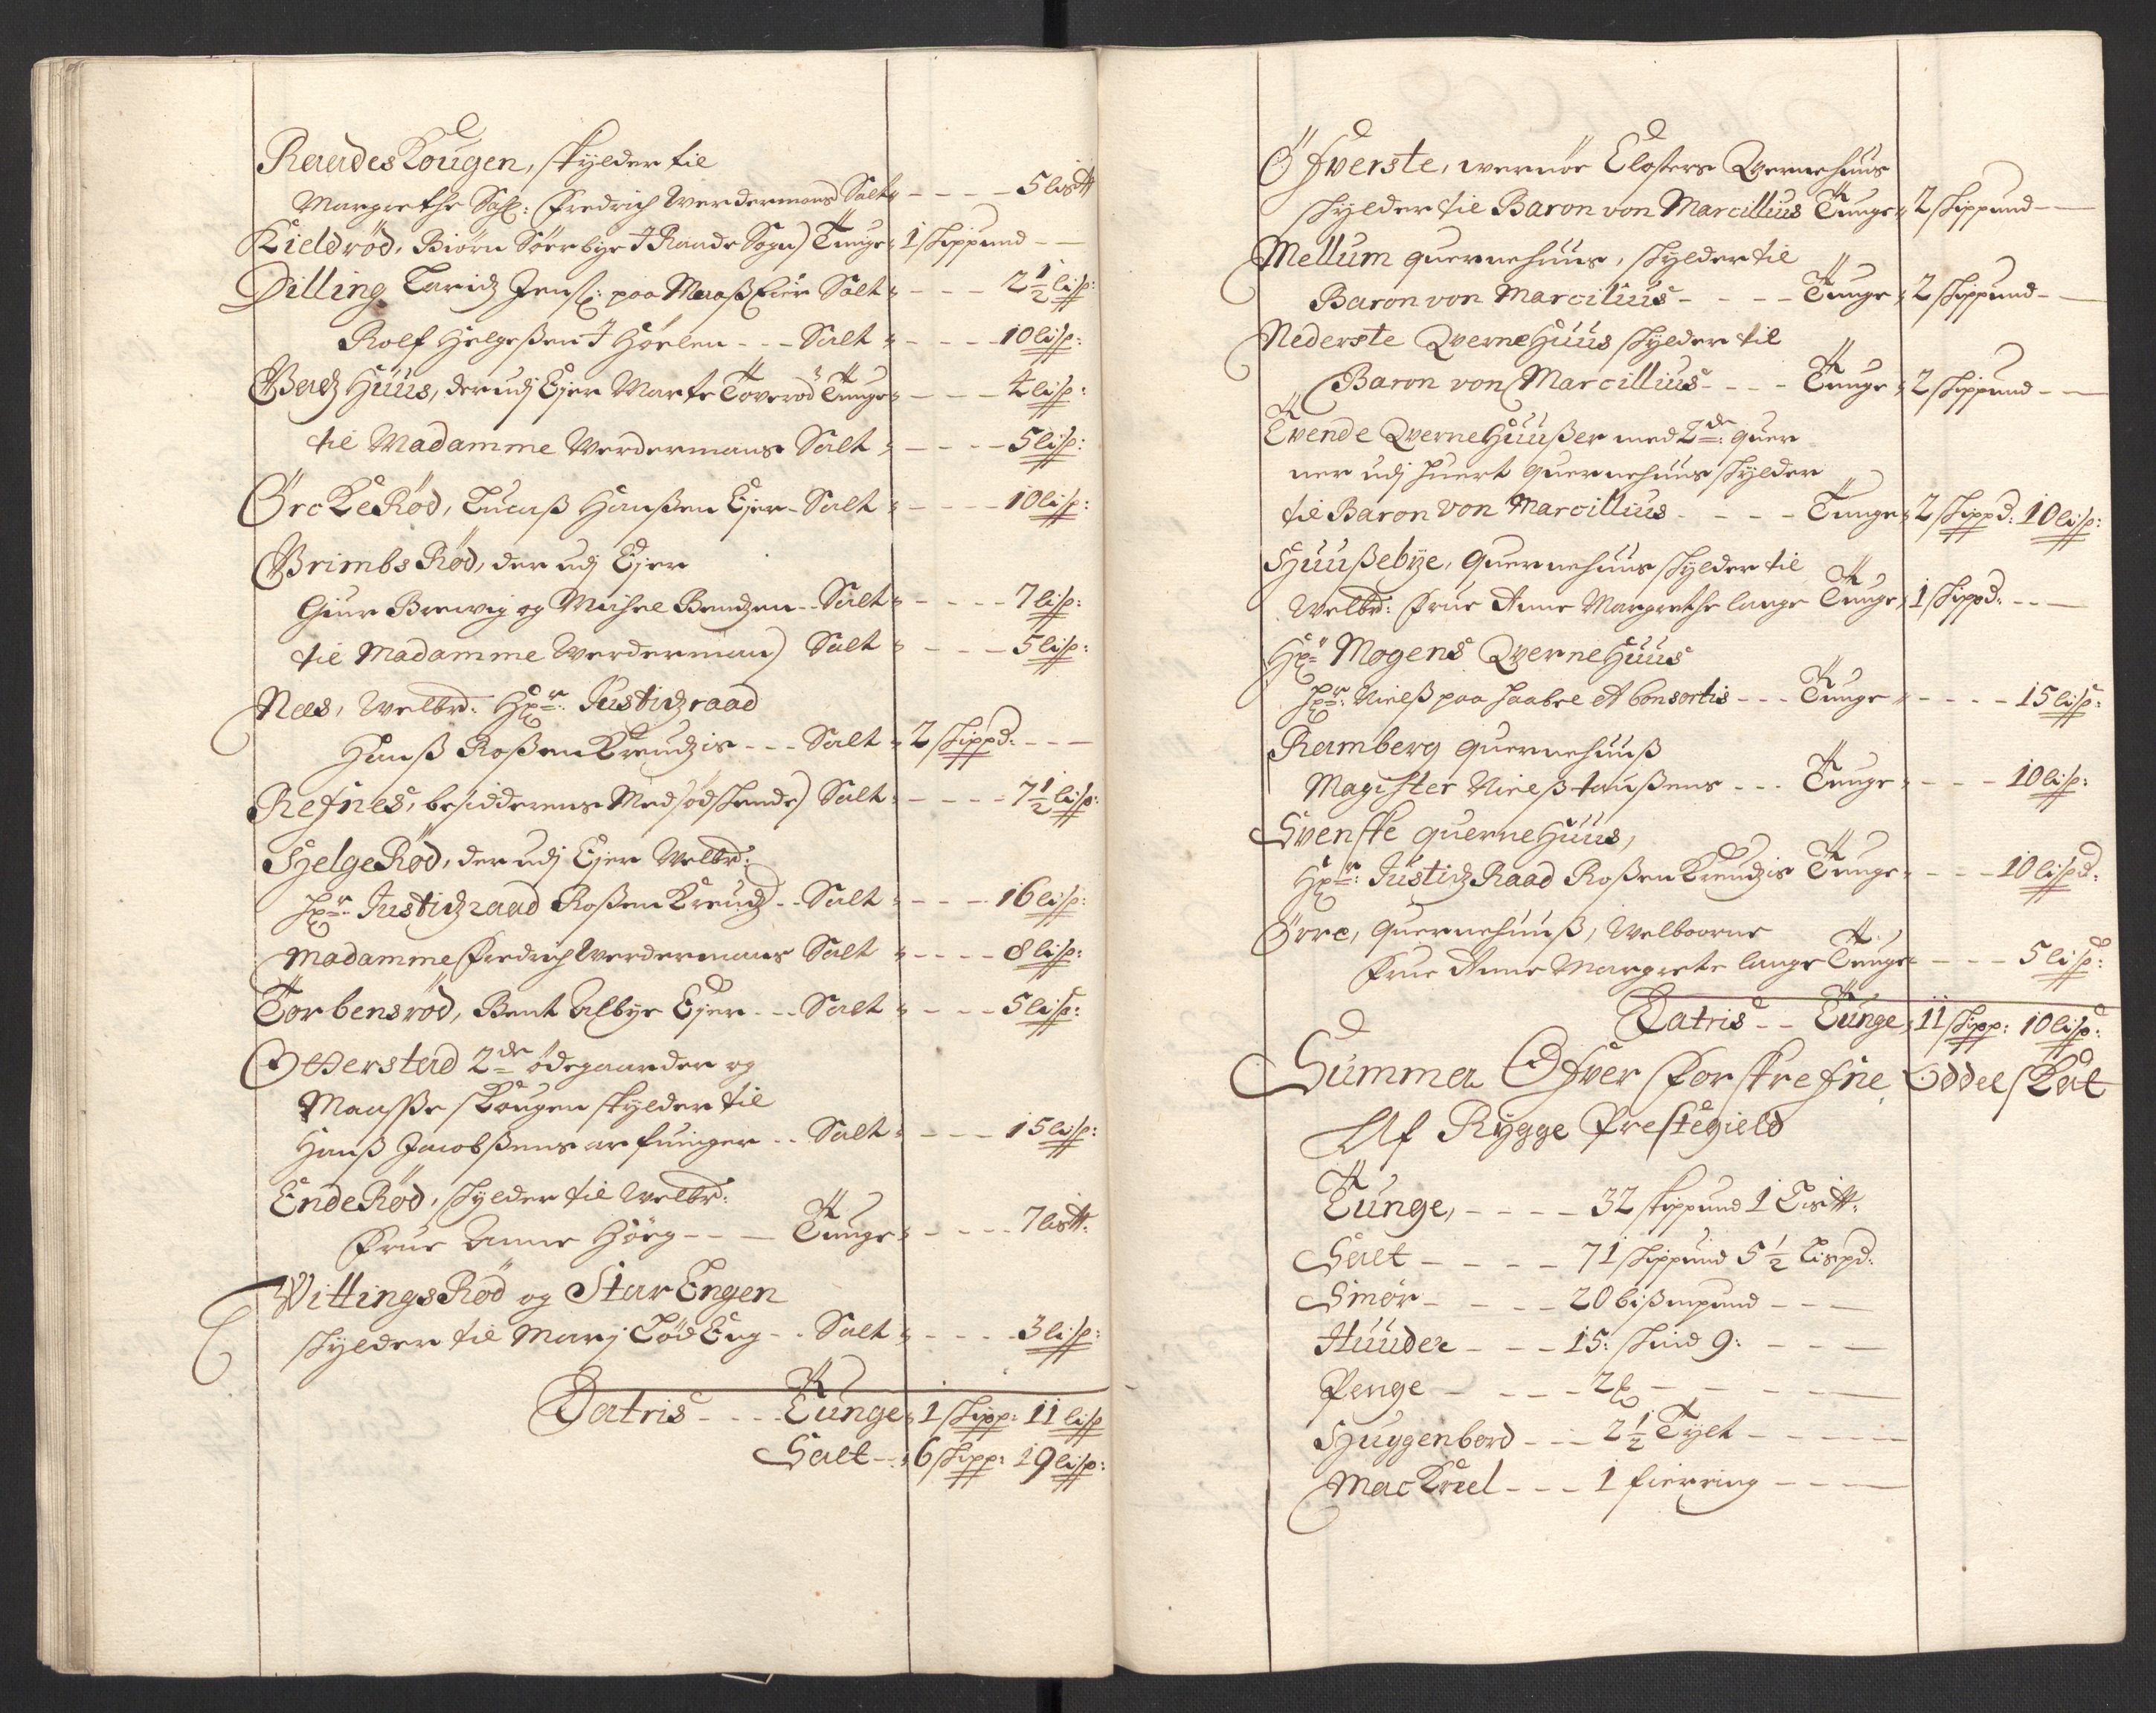 Raades Kougen, skylder til
Margrethe Sahl: Fredrich Werdermans Salt " - - - - 5 lis℔
Kieldrød, Biørn Sørbye J Raade Sogn) Tunge " 1 skippund - -
Dilling Laridz Jenß: paa Maaß Eier Salt " - - - 2½ lisp:
Rolf Helgeßen J Hørlen - - - Salt " - - - - 10 lisp:
Badz Huus, der udj Ejer Marte Toverød Tunge " - - - - 4 lisp:
til Madamme Werdermans Salt " - - - - 5 lisp:
Ørcke Rød, Lucaß Hanßen Ejer - Salt " - - - - 10 lisp:
Brimbs Rød, der udj Ejer
Giur Brewig og Michel Bendzen - - Salt " - - - - 7 lisp:
til Madamme Werderman) Salt " - - - - 5 lisp:
Nes, Welbr: Hr: Justidzraad
Hanß Roßenkreudzis - - - Salt " 2 skippd: - - -
Refnes, besidderens Medsødskende) Salt " - - - - 7½ lisp:
Helge Rød, der udj Ejer Welbr:
Hr: Justidzraad Roßen Kreudz - - Salt " - - - - 16 lisp:
Madamme Fredrich Werdermans Salt " - - - - 8 lisp:
Torbensrød, Bent Albye Ejer - - - Salt " - - - - 5 lisp:
Otterstad 2de ødegaarder og
Mausse Kougen skylder til
Hanß Jacobßens arfuinger - - Salt " - - - - 15 lisp:
Ende Rød, skylder til Welbr:
Frue Anne Høeg - - - Tunge " - - - - 7 lis℔:
Wittings Rød og Star Engen
skylder til Marj Lød Eng - - Salt " - - - - 3 lisp:
Latris - - - - Tunge " 1 skipp: 11 lisp
Salt - - " 6 skipp: 19 lisp:
Øfverste, wernøe Closters Qvernehuus
skylder til Baron von Marcillius Tunge " 2 skippund - -
Mellum quernehuus, skylder til
Baron von Marcilius - - - - Tunge " 2 skippund - -
Nederste Qverne Huus skylder til
Baron von Marcillius - - - - Tunge " 2 skippund - -
Tvende Qverne Huußer med 2de: quer
ner udj huert quernehuus skylder
til Baron von Marcillius - - - - Tunge " 2 skippd: 10 lisp:
Huußebye, quernehuus skylder til
Welbr: Frue Anne Margrethe lange Tunge " 1 skippd: - - -
Hr: Mogens Qverne Huus
Hr: Nielß paa Haabel et Consortis - - - Tunge " - - - - 15 lisp:
Ramberg quernehuuß
Magister Nielß taußens - - - Tunge " - - - - 10 lisp:
Svenske querne Huus,
Hr: Justidz Raad Roßen Kreudzis Tunge " - - - 10 lispd:
Ørre, quernehuuß, Welboorne
Frue Anne Margrete lange Tunge " - - - 5 lisp:
Latris - - Tunge " 11 skipp: 10 lisp:
Summa Ofver Forskrefne Oddel Skat
Af Rygge Prestegield
Tunge, - - - - 32 skippund 1 Lis℔:
Salt - - - - 71 skippund 5½ Lispd:
Smør - - - - 20 bißmpund - - -
Huuder - - - 15: skind 9: - - -
Penge - - - - 2 - - - -
Huggenbord - - - 2½ Tylt - - - -
Mackrel - - - 1 fierring - - - -